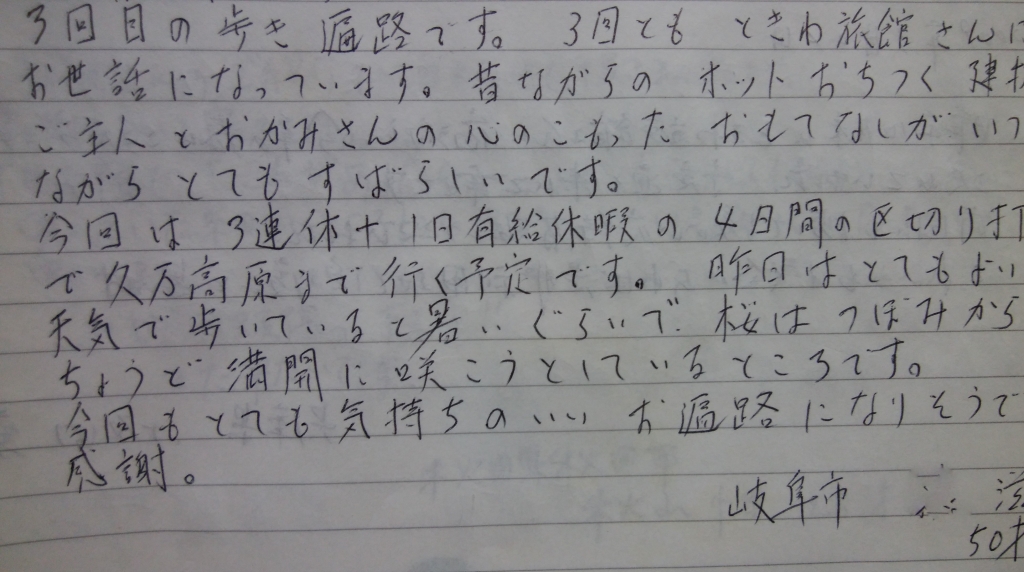 3回目の歩き遍路です。 3回とも ときわ旅館さんに
お世話になっています。昔ながらの ホットおちつく 建
ご主人とおかみさんの心のこもった おもてなしが いつ
ながら とても すばらしいです。
今回は 3連休+1日有給休暇の 4日間の区切り打
で久万高原まで行く予定です。 昨日はとてもよい
天気で歩いていると暑いぐらいで、桜はつぼみから
ちょうど満開に咲こうとしているところです。
今回もとても気持ちのいい お遍路になりそうで
感謝。
岐阜市
50才